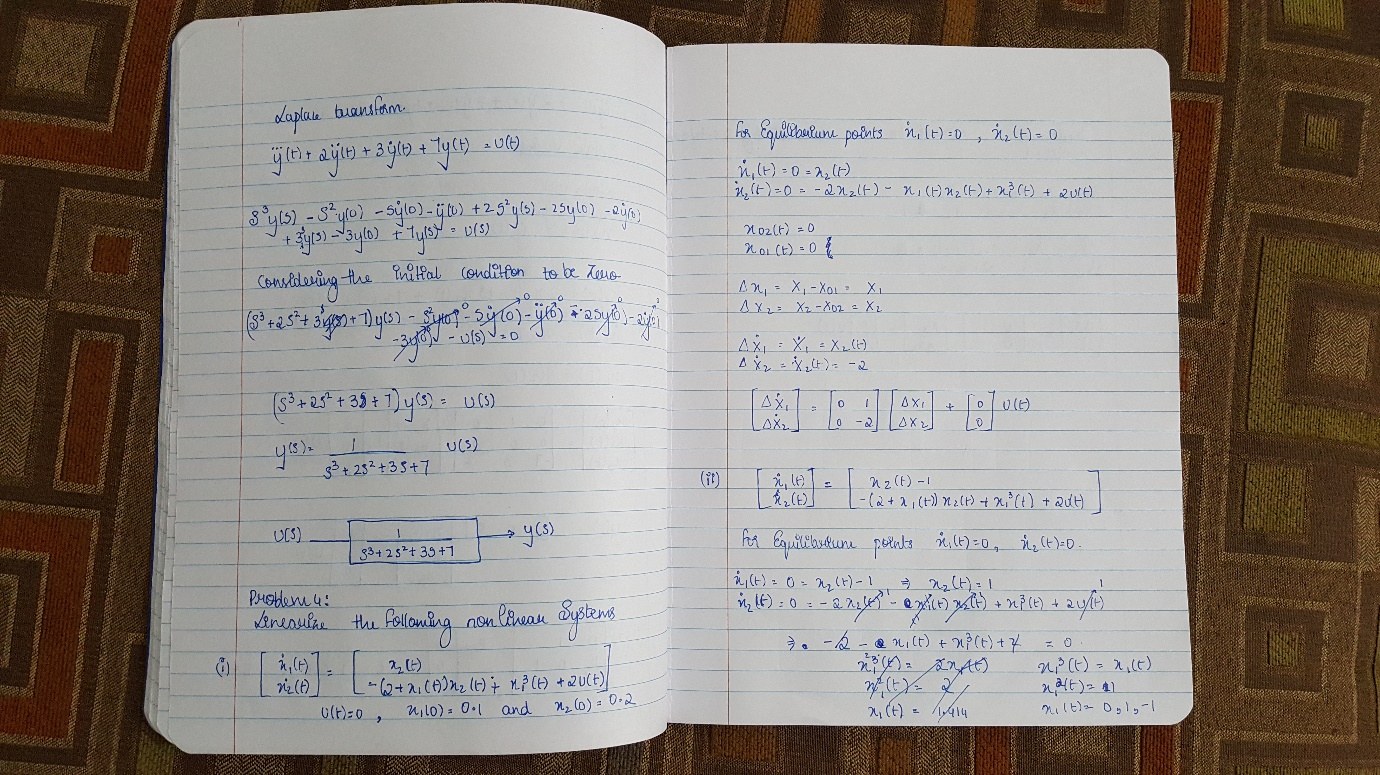 Laplace transform.
y⃛(t) + 2ÿ(t) + 3ẏ(t) + 7y(t) = U(t)
S³y(S) - S²y(0) - Sẏ(0) - ÿ(0) + 2S²y(S) - 2Sy(0) - 2ẏ(0)
+ 3Sy(S) - 3y(0) + 7y(S) = U(S)
Considering the initial condition to be Zero
(S³+2S²+3S+7) y(S) - S²y(0) - Sẏ(0) - ÿ(0) - 2Sy(0) - 2ẏ(0)
-3y(0) - U(S) = 0
(S³+2S²+3S+7) y(S) = U(S)
y(S) = 1/(S³+2S²+3S+7) U(S)
U(S) 1/(S³+2S²+3S+7) → y(S)
Problem 4:
Linearize the following nonlinear Systems
(i) [ẋ₁(t) ẋ₂(t)] = [x₂(t) -(2+x₁(t))x₂(t) + x₁³(t) + 2U(t)]
U(t)=0, x₁(0)=0.1 and x₂(0)=0.2
for Equilibrium points ẋ₁(t)=0, ẋ₂(t)=0
ẋ₁(t)=0=x₂(t)
ẋ₂(t)=0 = -2x₂(t) - x₁(t)x₂(t) + x₁³(t) + 2U(t)
x02(t)=0
x01(t)=0
Δx₁ = X₁-X01 = X₁
ΔX₂ = X₂-X02 = X₂
ΔẊ₁ = Ẋ₁ = X₂(t)
ΔẊ₂ = Ẋ₂(t) = -2
[ΔẊ₁ ΔẊ₂] = [0 1 0 -2] [ΔX₁ ΔX₂] + [0 0] U(t)
(ii) [ẋ₁(t) ẋ₂(t)] = [x₂(t)-1 -(2+x₁(t))x₂(t) + x₁³(t) + 2U(t)]
for Equilibrium points ẋ₁(t)=0, ẋ₂(t)=0.
ẋ₁(t) = 0 = x₂(t)-1 ⇒ x₂(t)=1
ẋ₂(t) = 0 = -2x₂(t) - x₁(t) x₂(t) + x₁³(t) + 2U(t)
⇒ -2 - x₁(t) + x₁³(t) + 2 = 0
x₁³(t) = 2x₁(t) x₁³(t) = x₁(t)
x₁²(t) = 2 x₁²(t) = 1
x₁(t) = 1.414 x₁(t) = 0, 1, -1